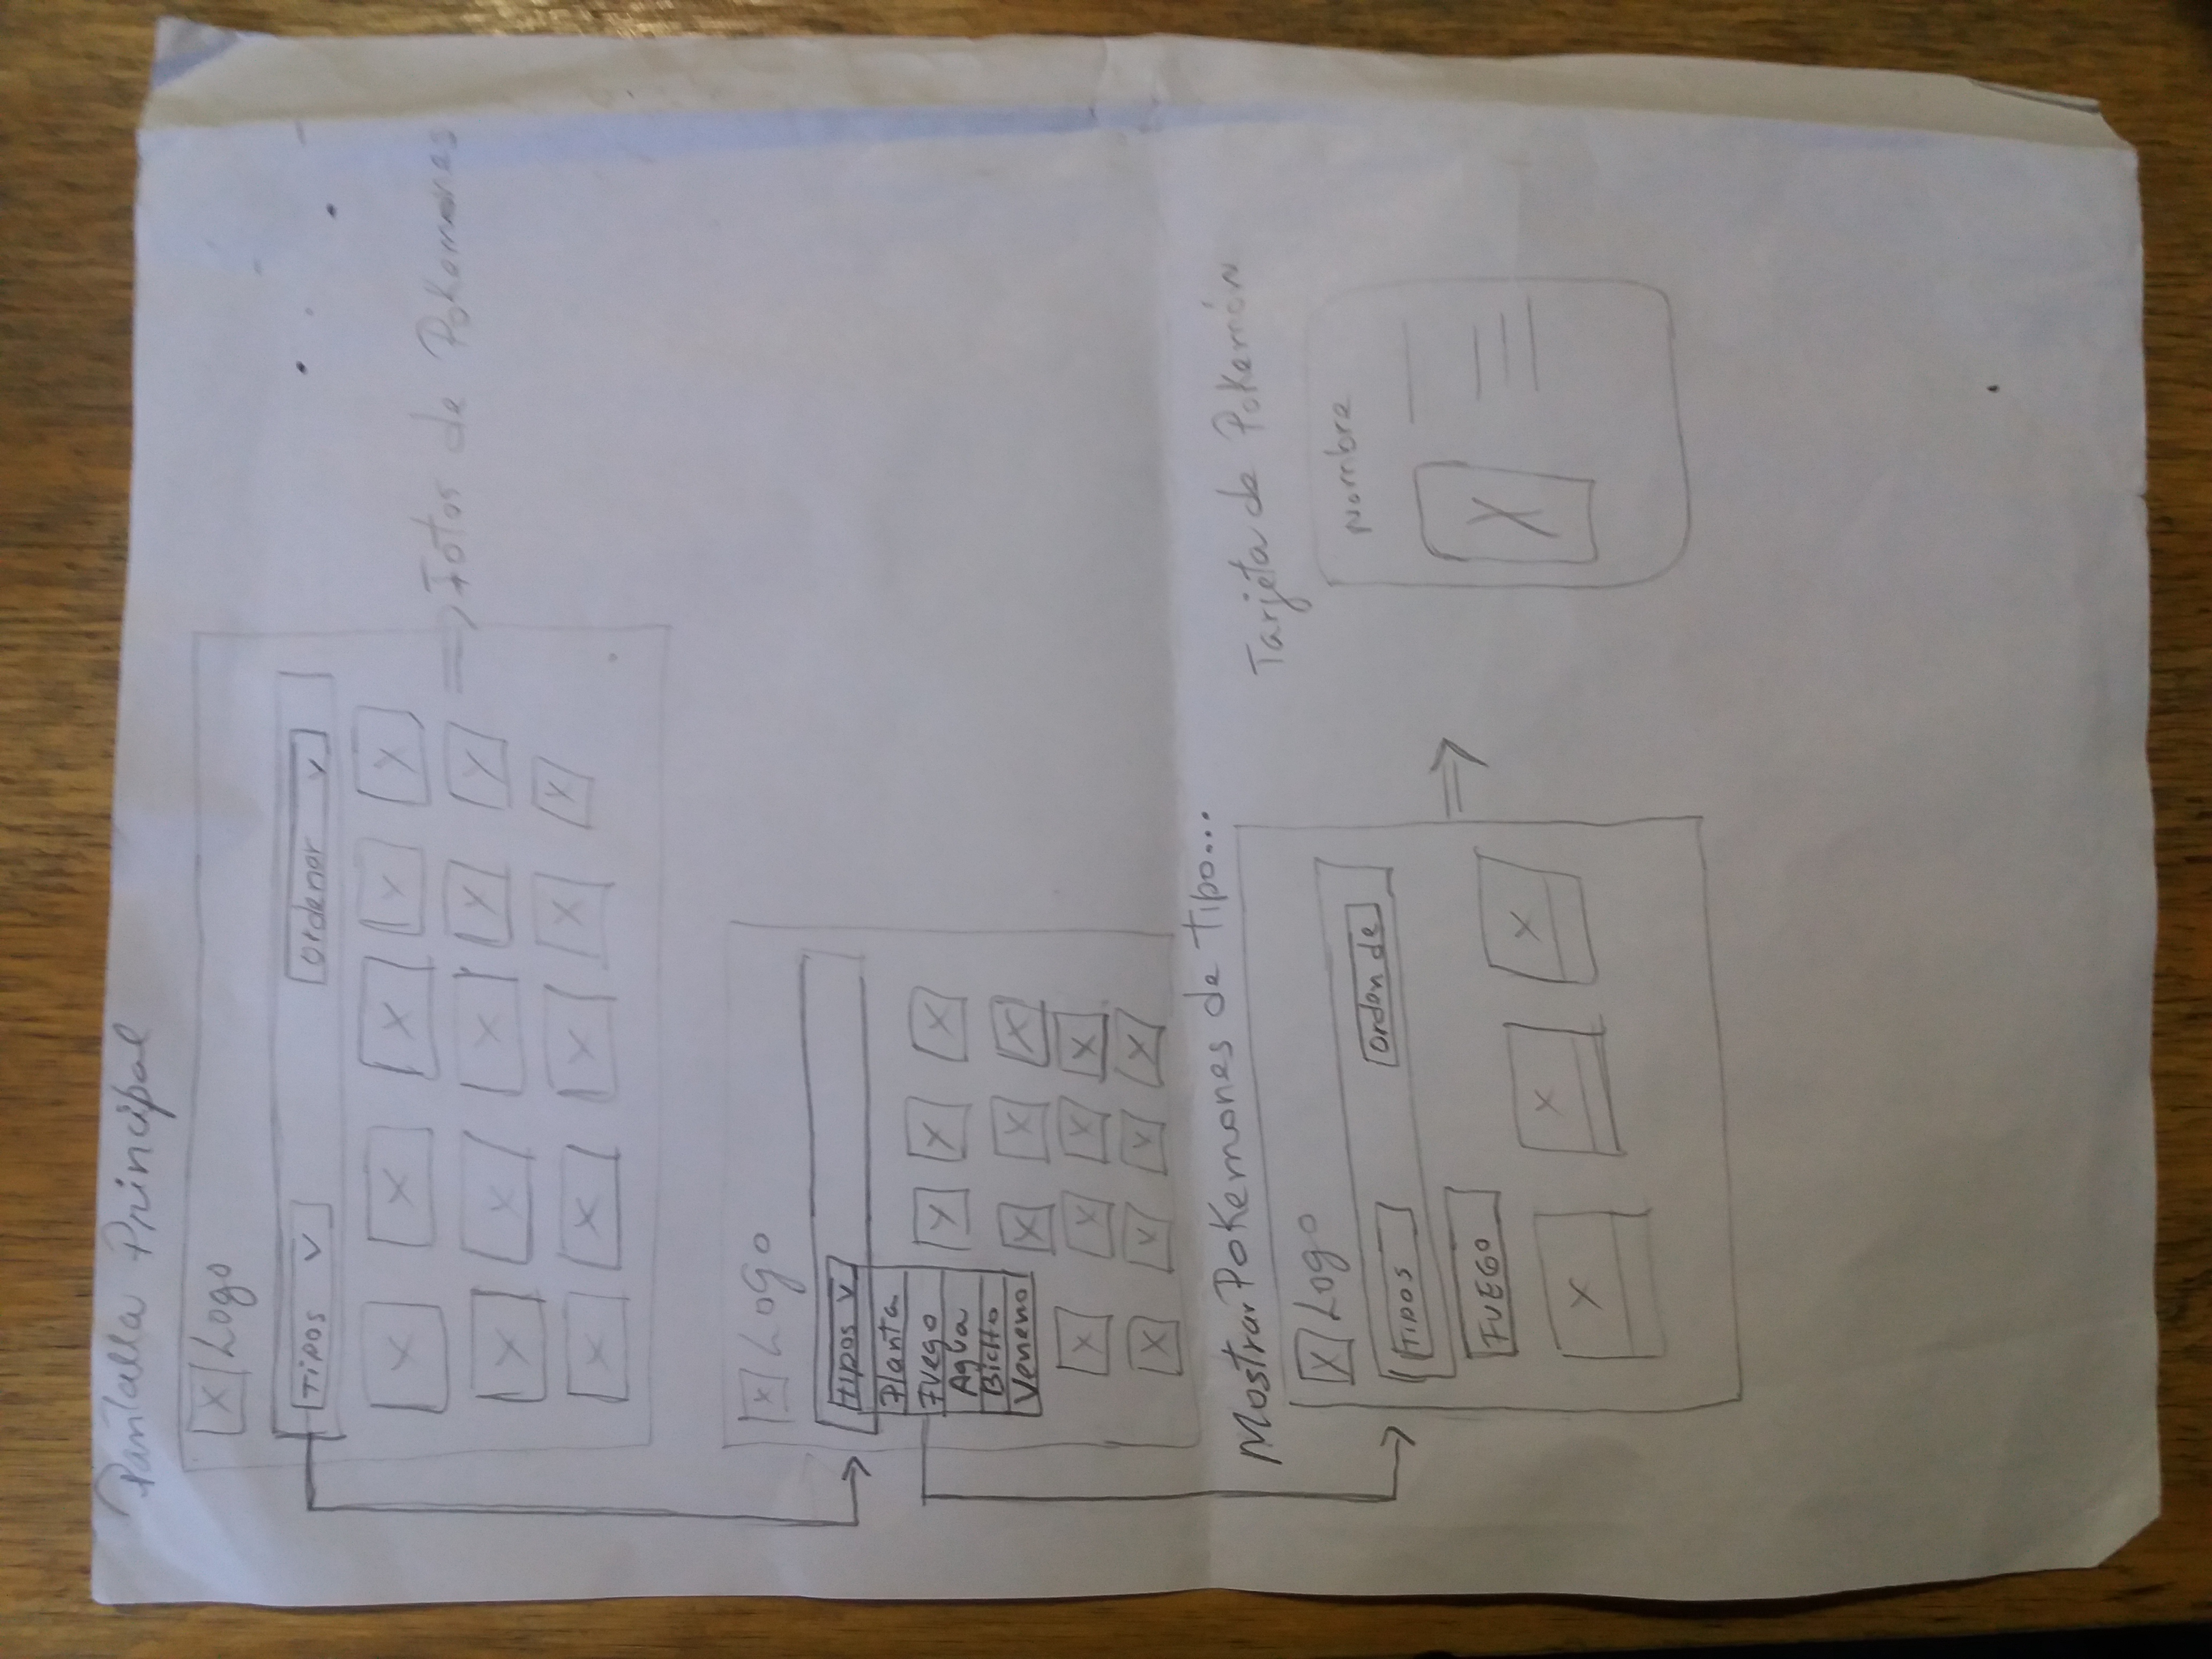 Pantalla Principal
X Logo
Tipos V Ordenar V
X X X X X
X X X X X
X X X X X
=> Fotos de Pokemones
X Logo
tipos V
Planta
Fuego
Agua
Bicho
Veneno
X X X
X X X
X X X X
X X X X
Mostrar Pokemones de tipo...
X Logo
Tipos Orden de
FUEGO
X X X
=>
Tarjeta de Pokemón
Nombre
X